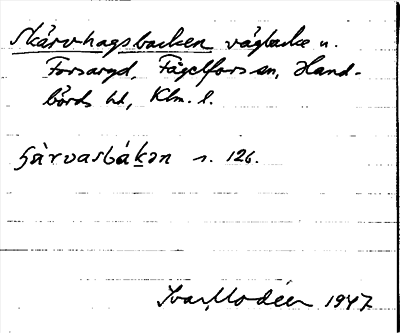 Skärvhagsbacken vägbacke n.
Forsaryd, Fågelfors sn, Hand-
börds hd, Klm. l.
ʃàrvasbákən s. 126.
Ivar Modéer 1947